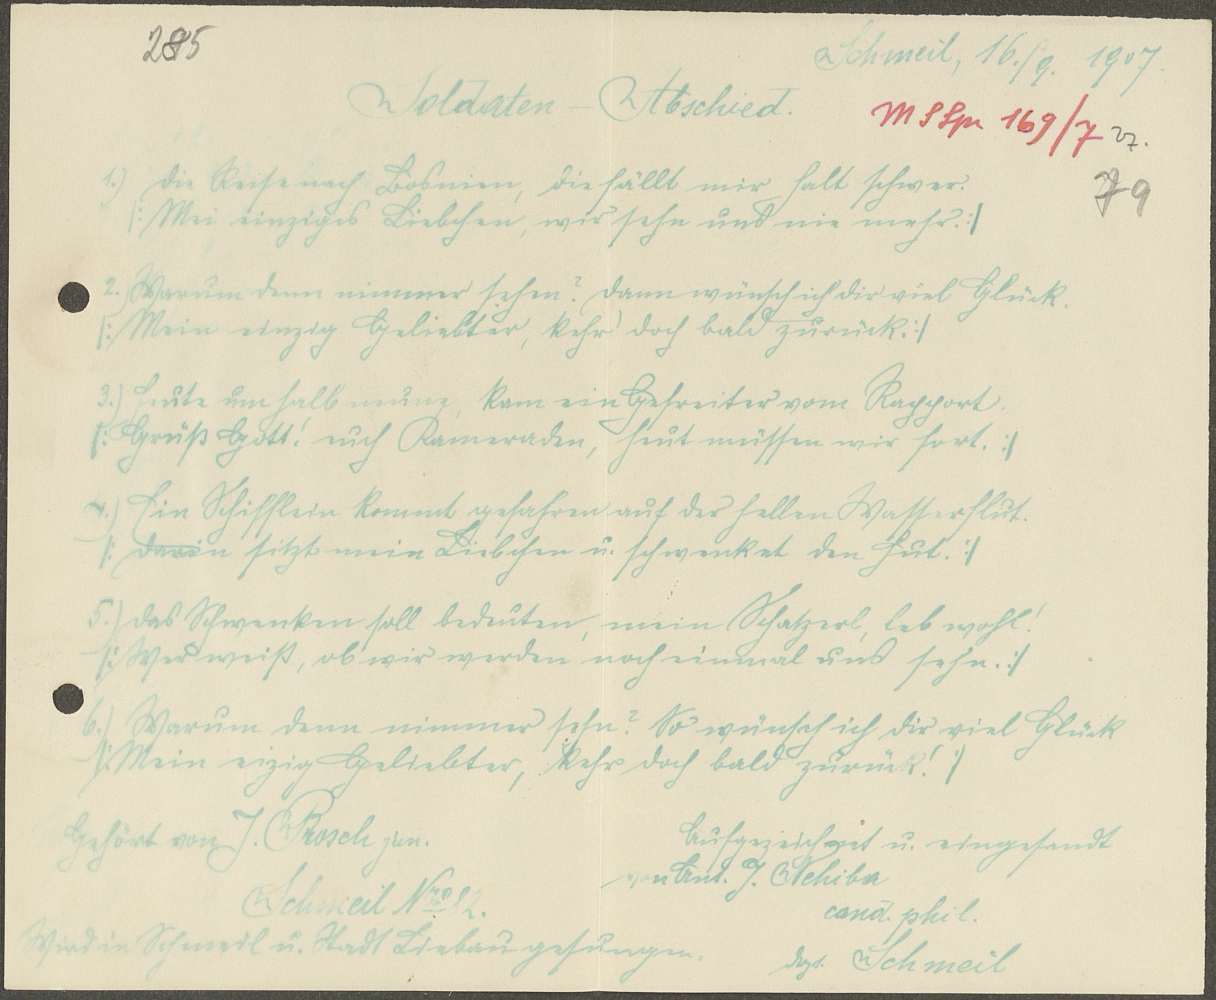 285
Schmeil, 16./9. 1907.
Soldaten-Abschied.
169/7
27.
79
1.) Die Reise nach Bosnien, die fällt mir halt schwer.
|: Mei einziges Liebchen, wir sehn uns nie mehr. :|
2.) Warum denn nimmer sehen? Dann wünsch ich dir viel Glück.
|: Mein einzig Geliebter, kehr doch bald zurück. :|
3.) Heute um halb neune, kam ein Gefreiter vom Rapport.
|: Grüß Gott! euch Kameraden, heut müssen wir fort. :|
4.) Ein Schifflein kommt gefahren auf der hellen Wasserflut.
|: Darin sitzt mein Liebchen u. schwenket den Hut. :|
5.) Das Schwenken soll bedeuten, mein Schatzerl, leb wohl!
|: Wer weiß, ob wir werden noch einmal uns sehn. :|
6.) Warum denn nimmer sehn? So wünsch ich dir viel Glück
|: Mein eizig Geliebter, kehr doch bald zurück! :|
Gehört von J. Prosch jun.
Schmeil Nro 82.
Wird in Schmeil u. Stadt Liebau gesungen.
Aufgezeichnet u. eingesandt
von Ant. J.
cand. phil.
dzt. Schmeil